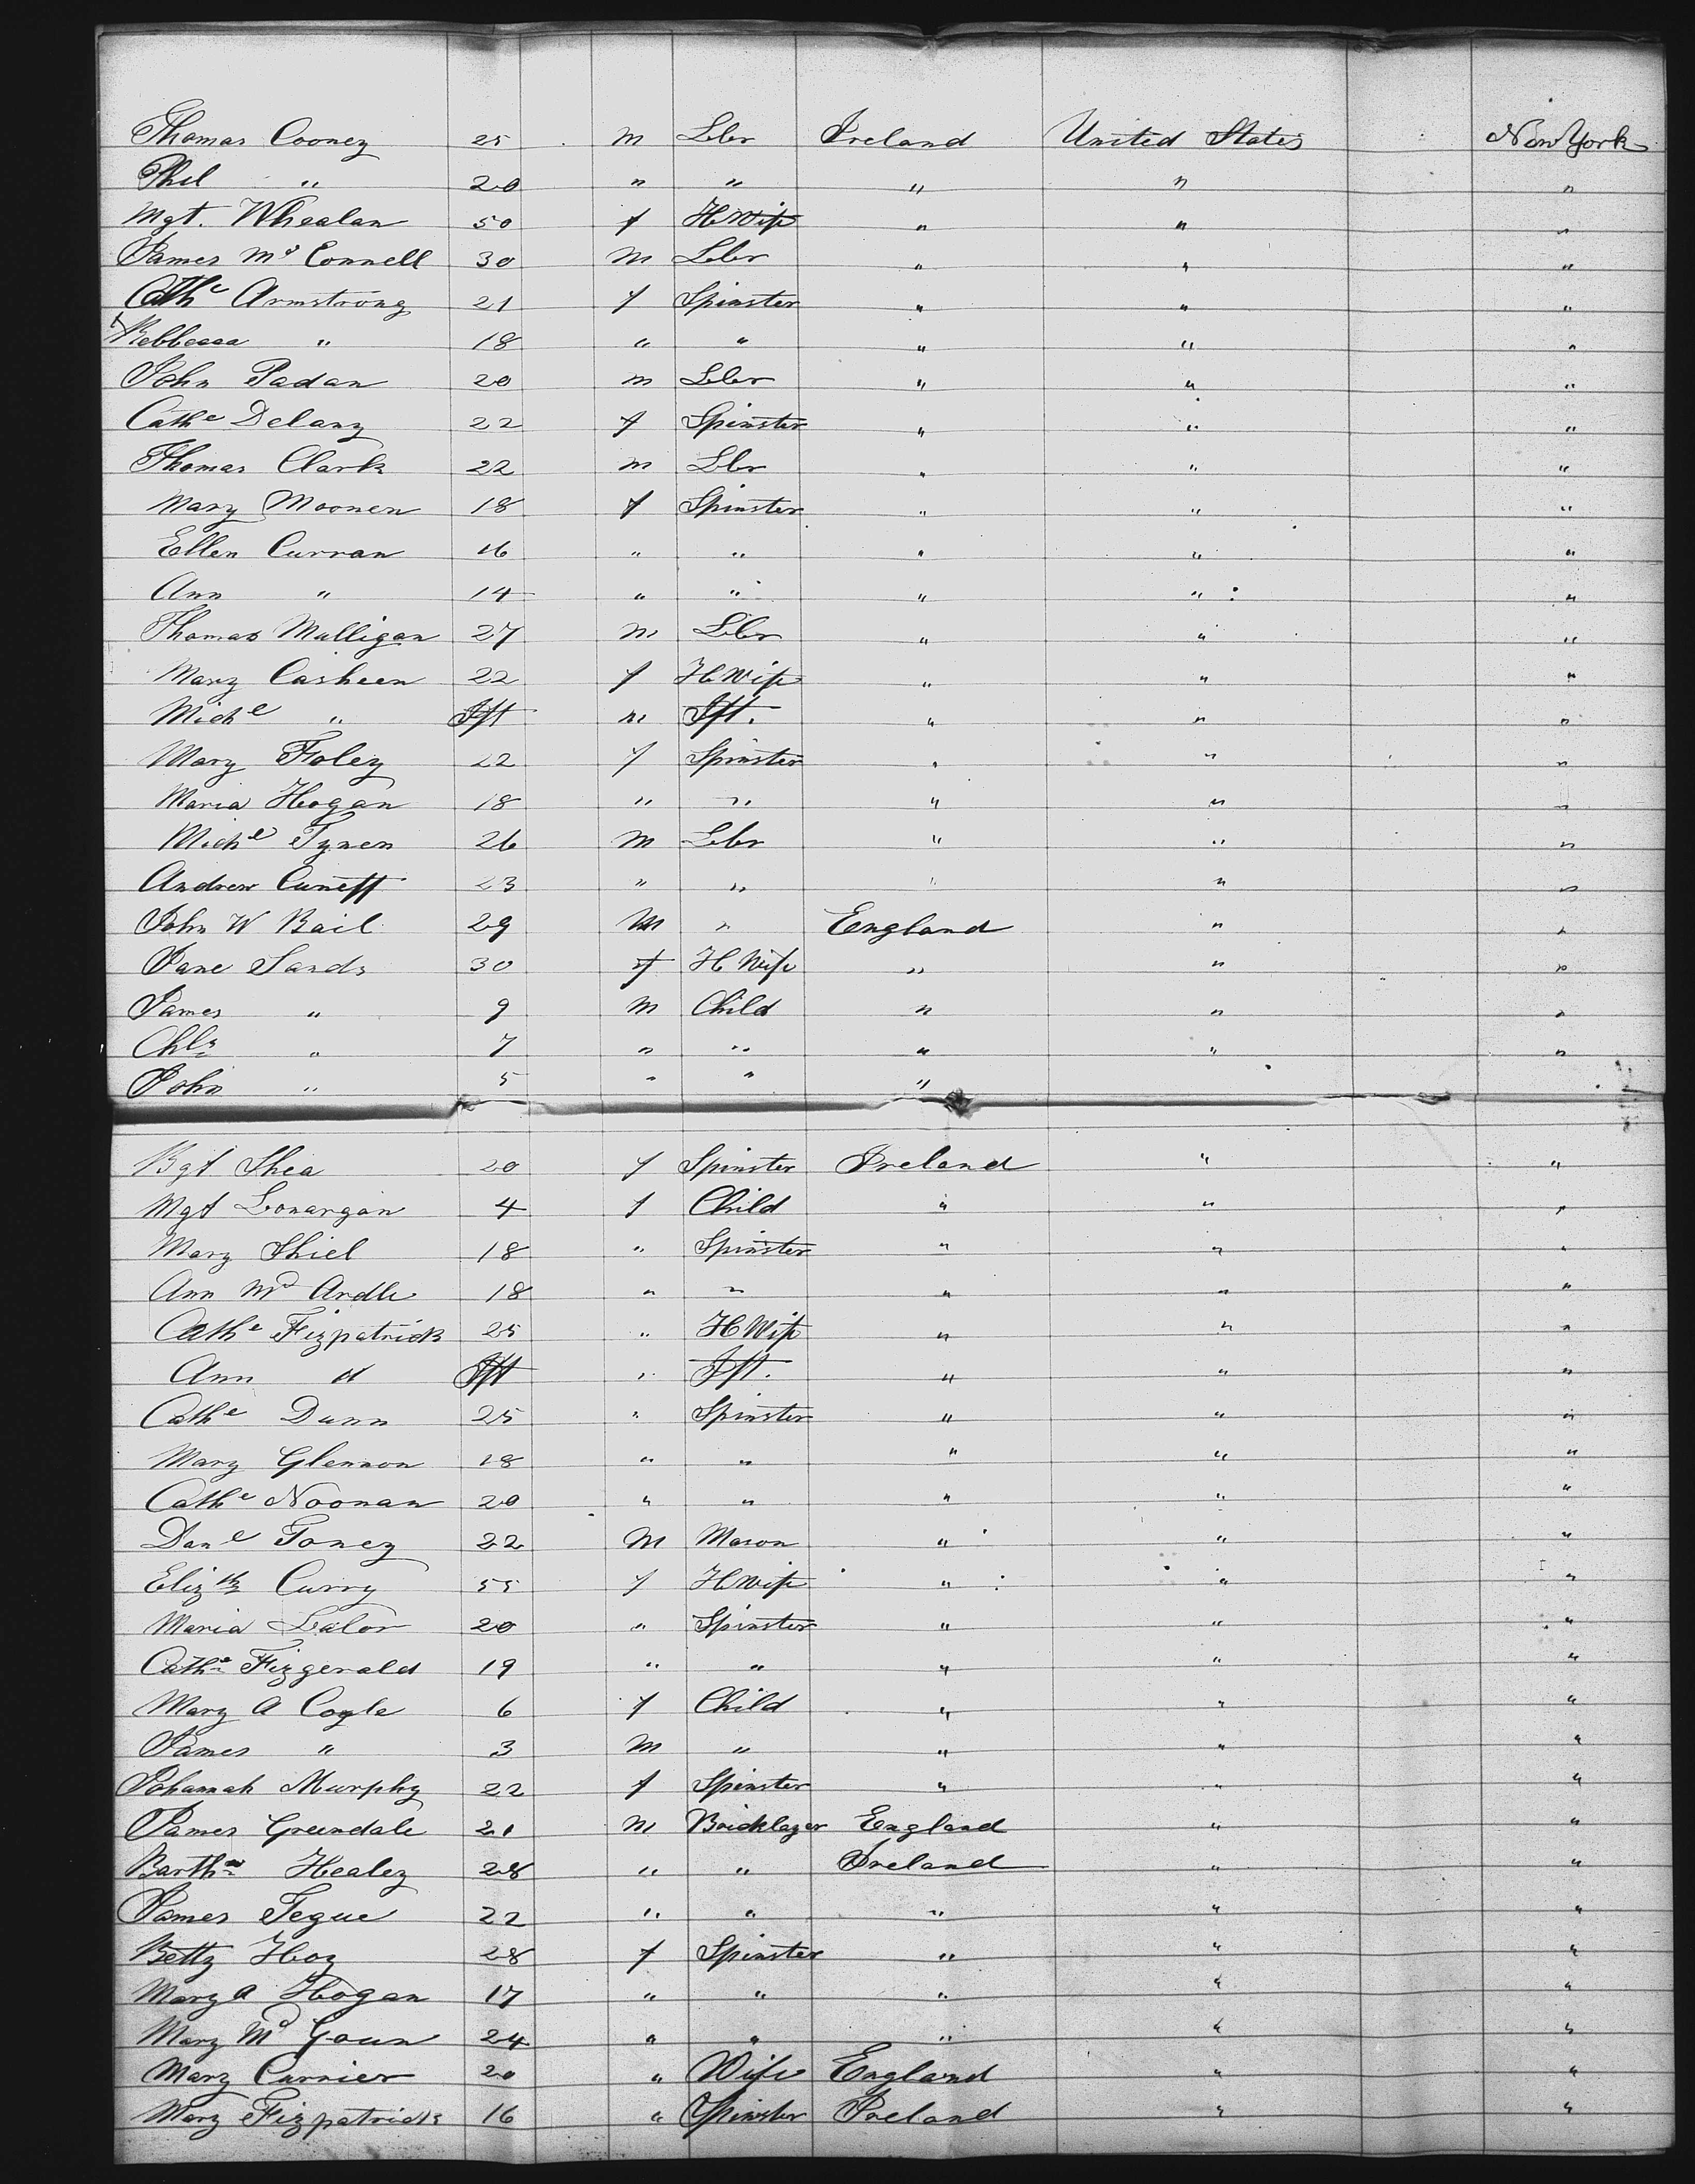 Thomas Cooney 25 m Lbr Ireland United States New York
Phil " 20 " " " " "
Mgt. Whealan 50 f H Wife " " "
James Mc Connell 30 m Lbr " " "
Cathe Armstrong 21 f Spinster " " "
Rebbecca " 18 " " " " "
John Padan 20 m Lbr " " "
Cathe Delany 22 f Spinster " " "
Thomas Clark 22 m Lbr " " "
Mary Moonen 18 f Spinster " " "
Ellen Curran 16 " " " " "
Ann " 14 " " " " "
Thomas Mulligan 27 m Lbr " " "
Mary Casheen 22 f H Wife " " "
Miche " Ift m Ift. " " "
Mary Foley 22 f Spinster " " "
Maria Hogan 18 " " " " "
Miche Tynen 26 m Lbr " " "
Andrew Cuneff 23 " " " " "
John W Bail 29 m " England " "
Jane Sands 30 f H Wife " " "
James " 9 m Child " " "
Chls " 7 " " " " "
John " 5 " " "
Bgt Shea 20 f Spinster Ireland " "
Mgt Lonargan 4 f Child " " "
Mary Shiel 18 " Spinster " " "
Ann Mc Ardle 18 " " " " "
Cathe Fizpatrick 25 " H Wife " " "
Ann " Ift " Ift. " " "
Cathe Dunn 25 " Spinster " " "
Mary Glennon 18 " " " " "
Cathe Noonan 20 " " " " "
Dane Toney 22 m Mason " " "
Elizth Curry 55 f H Wife " " "
Maria Lalor 20 " Spinster " " "
Cathe Fizgerald 19 " " " " "
Mary A Coyle 6 f Child " " "
James " 3 m " " " "
Johannah Murphy 22 f Spinster " " "
James Greendale 21 m Bricklayer England " "
Barthw Healey 28 " " Ireland " "
James Tegue 22 " " " " "
Betty Hoy 28 f Spinster " " "
Mary A Hogan 17 " " " " "
Mary Mc Goun 24 " " " " "
Mary Currier 20 " Wife England " "
Mary Fizpatrick 16 " Spinster Ireland " "